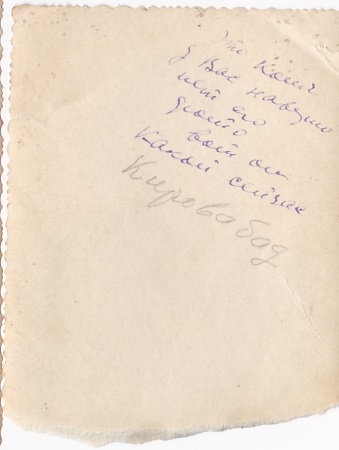 Это Коля
у Вас наверно
нет его
фото
вот он
какой сейчас
Кировабад